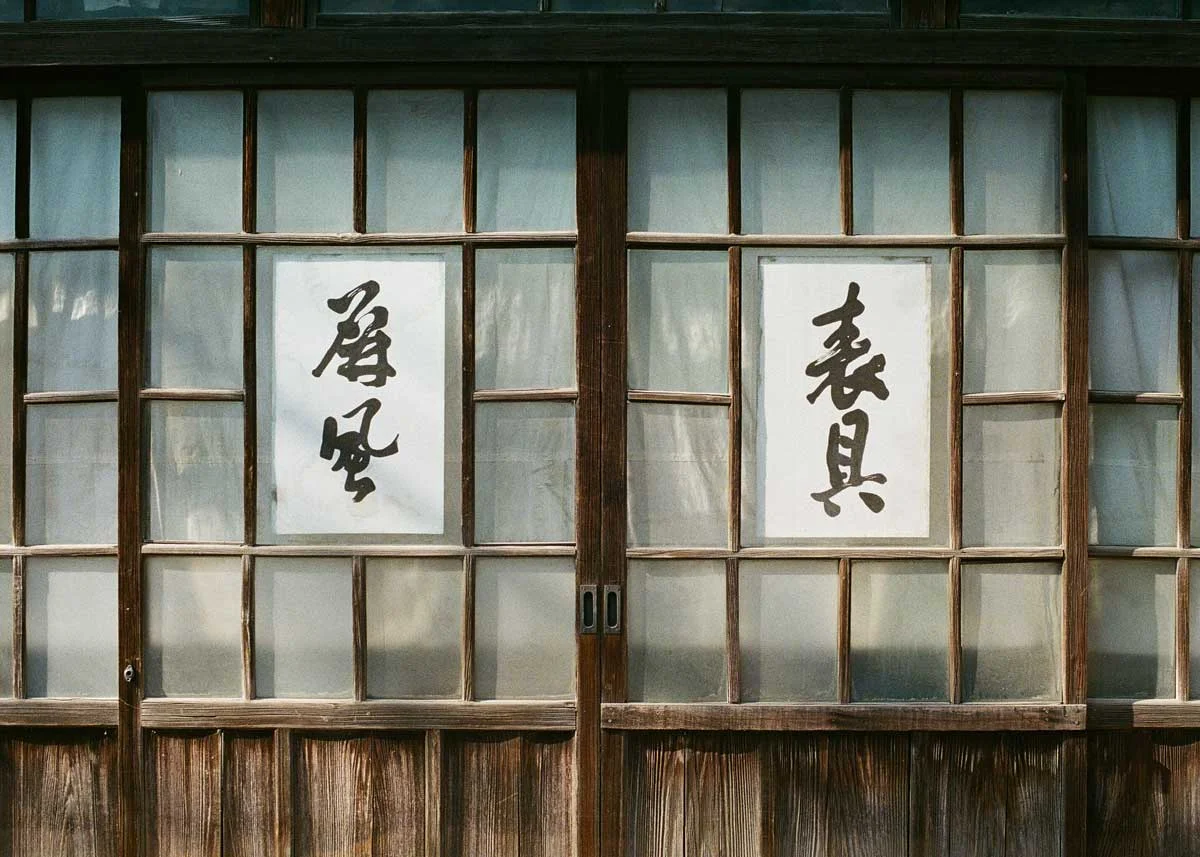 表具
屏風